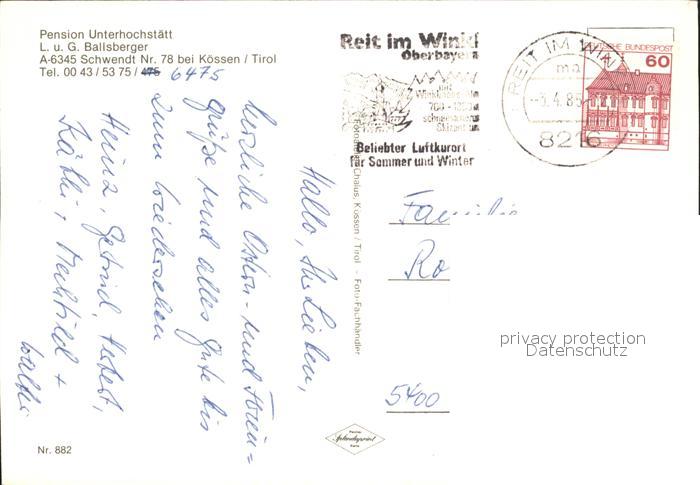 Pension Unterhochstätt
L. u. G. Ballsberger
A-6345 Schwendt Nr. 78 bei Kössen / Tirol
Tel. 00 43 / 53 75 / 475 6475
Hallo, Ihr Lieben,
herzliche Ostern- und Ferien=
grüße und alles Gute bis
zum Wiedersehen
Heinz, Gertrud, Herbert,
Käthi, Mechthild +
Walter
Nr. 882
Reit im Winkl
Oberbayern
700 -
Beliebter Luftkurort
für Sommer und Winter
REIT IM WIN
ma
-3. 4. 85
8216
DEUTSCHE BUNDESPOST
60
Chalus, Kössen / Tirol - Foto-Fachhändler
Familie
Ro
5400
privacy protection
Datenschutz